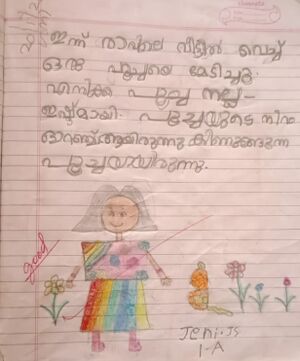 ഇന്ന് രാവിലെ വീട്ടിൽ വെച്ച്
ഒരു പൂച്ചയെ മേടിച്ചു.
എനിക്ക് പൂച്ച നല്ല
ഇഷ്ടമായി. പൂച്ചയുടെ നിറം
ഓറഞ്ച് ആയിരുന്നു
പൂച്ചയായിരുന്നു.
good
Jeni.JS
1-A